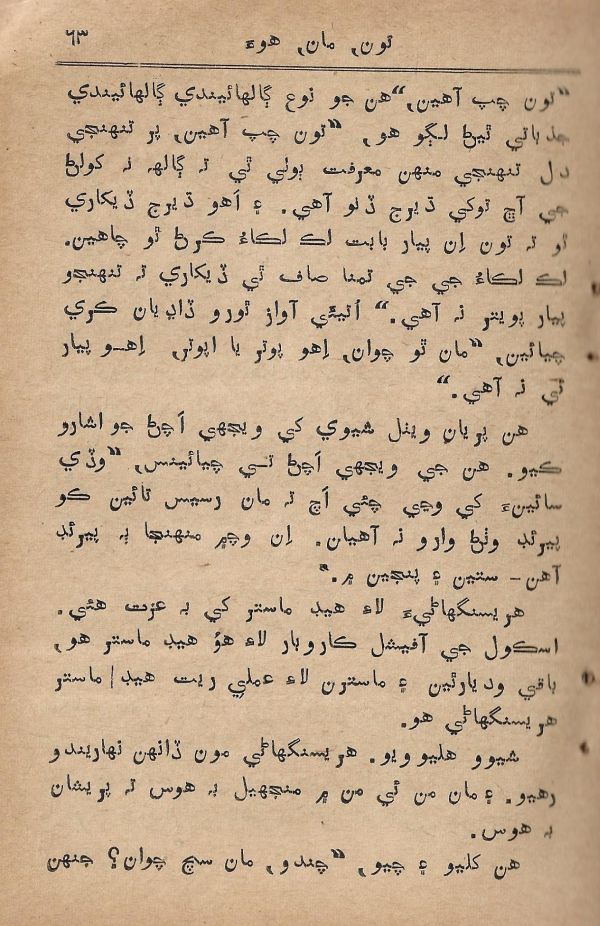 تون، مان، هوءَ ٦٣
”تون چپ آهين،“ هن جو نوع ڳالهائيندي ڳالهائيندي
جذباتي ٿيڻ لڳو هو، ”تون چپ آهين، پر تنهنجي
دل تنهنجي منهن معرفت ٻولي ٿي ته ڳالهه نه کولڻ
جي اڄ توکي ڌيرج ڏنو آهي. ۽ اَهو ڌيرج ڏيکاري
ٿو ته تون اِن پيار بابت لڪ لڪاءُ ڪرڻ ٿو چاهين.
لڪ لڪاءُ جي جي تمنا صاف ٿي ڏيکاري ته تنهنجو
پيار پويتر نه آهي.“ اُتيئي آواز ٿورو ڏاڍيان ڪري
چيائين، ”مان ٿو چوان، اِهو پوتر يا اپوتر، اِهو پيار
ئي نه آهي.“
هن پريان ويٺل شيوي کي ويجهي اَچڻ جو اشارو
ڪيو. هن جي ويجهي اَچڻ تي چيائينس، ”وڏي
سائينءَ کي وڃي چئي اَچ ته مان رسيس تائين ڪو
پيرئڊ وٺڻ وارو نه آهيان. اِن وچ۾ منهنجا ٻه پيرئڊ
آهن - ستين ۽ پنجين ۾.“
هريسنگهاڻيءَ لاءِ هيڊ ماستر کي به عزت هئي.
اسڪول جي آفيشل ڪاروبار لاءِ هوُ هيڊ ماستر هو،
باقي وديارٿين ۽ ماسترن لاءِ عملي ريت هيڊ ماستر
هريسنگهاڻي هو.
شيوو هليو ويو. هريسنگهاڻي مون ڏانهن نهاريندو
رهيو. ۽ مان من ئي من ۾ منجهيل به هوس ته پريشان
به هوس.
هن کليو ۽ چيو، ”چندو، مان سچ چوان؟ جنهن